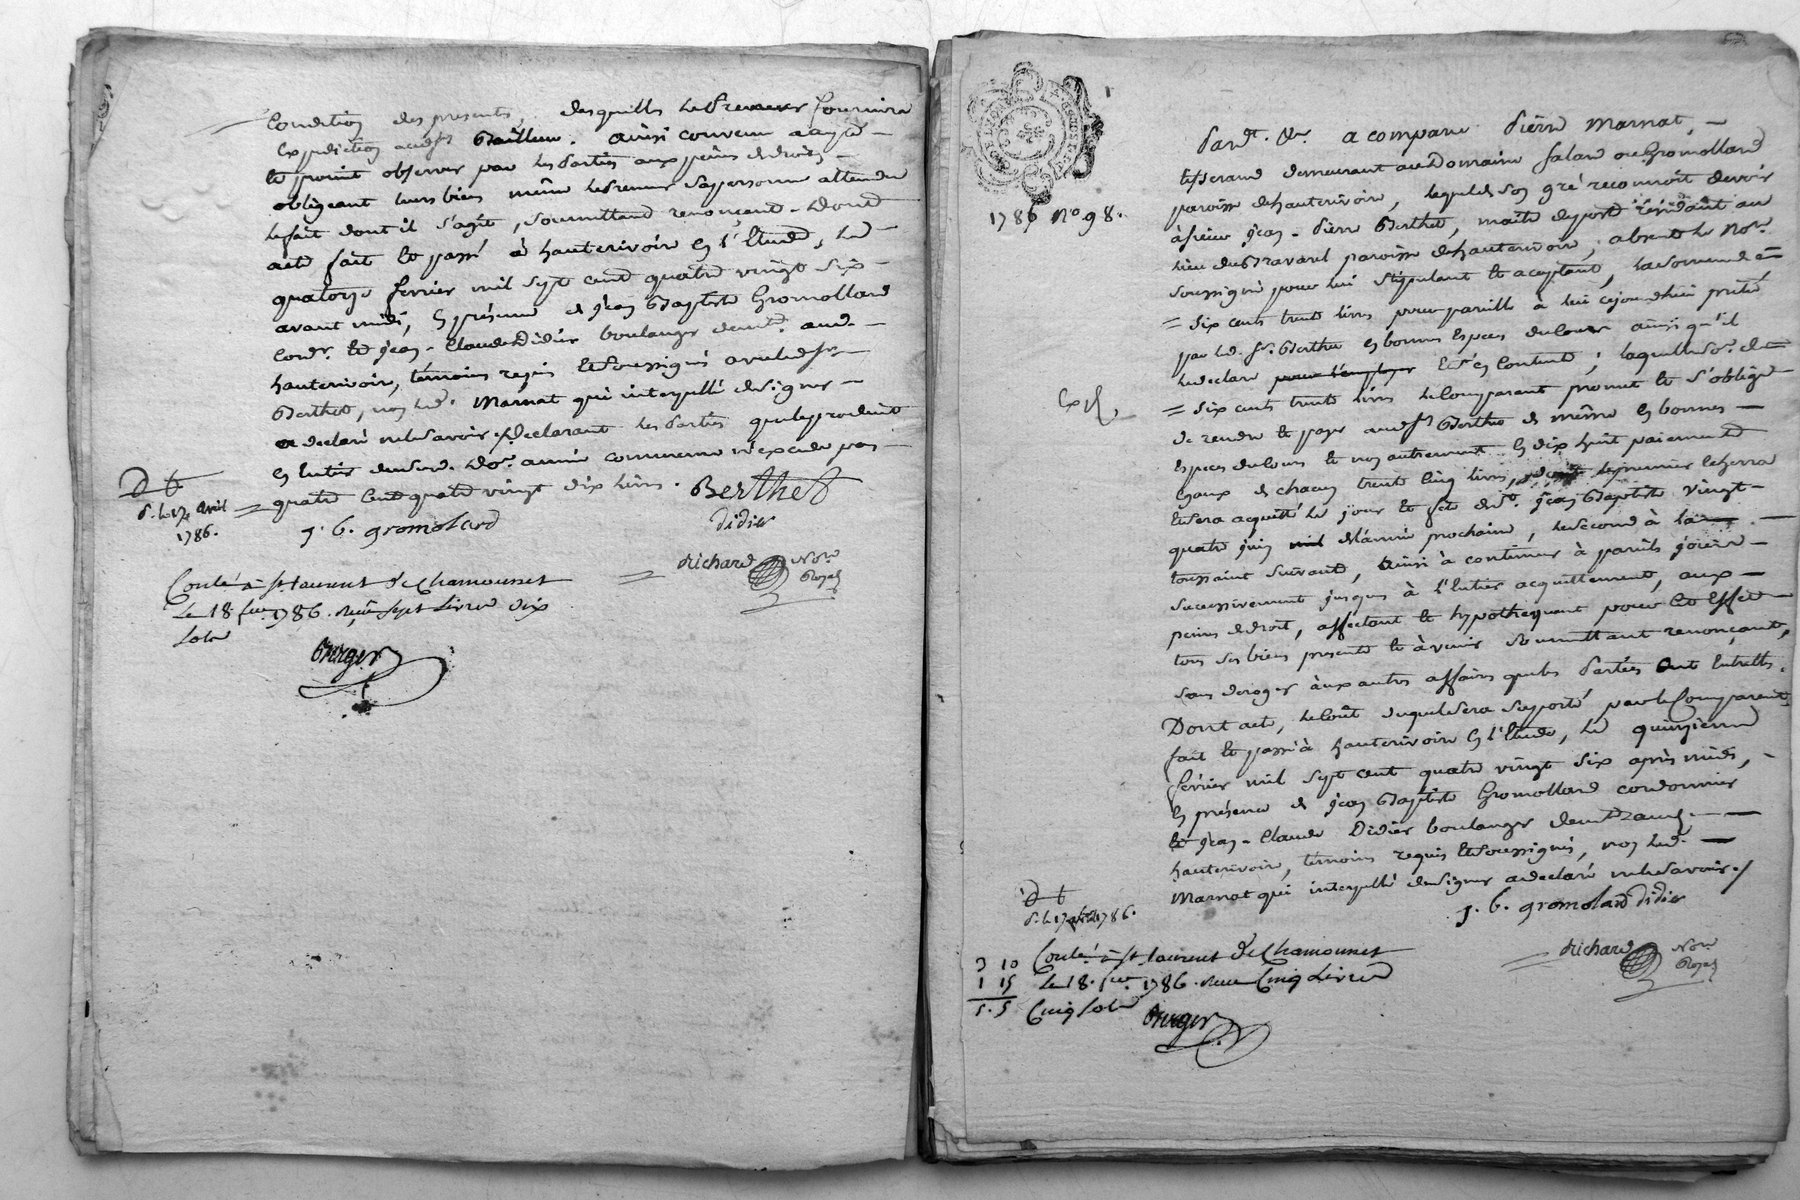 Condition des presents, desquelles le preneur fournira
expedition audit Bailleur. ainsi convenu a été
le promit observer par les parties aux peines de droit,
obligeant leurs biens même le preneur sa personne attendu
le fait dont il s'agit, soumettant renonçant. Dont
acte fait et passé à hauterivoire en l'Etude, le
quatorze fevrier mil sept cent quatre vingt six
avant midi, en présence de jean Baptiste Gromollard
cordr. et jean-Claude Didier boulanger demt. aud.
hauterivoire, témoins requis et soussignés avec led. sr.
Berthet, non led. Marnat qui interpellé de signer
a declaré ne le savoir. Declarant les parties que le produit
en entier dud. do. année commune n'excede pas
quatre cent quatre vingt dix livres. Berthet
d. le 17 avril
1786.
j. b. gromolard didier
Richard Nore Royal
Conlé à st. laurent de Chamousset
Le 18. fer. 1786. reçu sept Livres dix
sols
Berger
1786 No 98.
Pardt. &r. a comparu Pierre Marnat,
tisserand demeurant au Domaine falard ou Gromollard
paroisse de hauterivoire, lequel de son gré reconnoit devoir
à sieur jean-Pierre Berthet, maitre de poste résidant au
lieu du Bravard paroisse de hauterivoire, absent le Nore.
soussigné pour lui stipulant et aceptant, la somme de
= six cents trente livres pour pareille à lui cejourdhui prêté
par led. sr. Berthet en bonnes Especes du cours ainsi qu'il
le declare pour l'employer et s'en contente; laquelle so. de
Ex.
= six cents trente livres le comparant promet et s'oblige
de rendre et payer audit Sr Berthet de même en bonnes
Especes du cours et non autrement en dix huit paiements
Egaux de chacun trente cinq livres, dont le premier echerra
et sera acquitté le jour et fête de st. jean Baptiste vingt
quatre juin mil de l'année prochaine, le second à la
toussaint suivant, ainsi à continuer à pareils jours
sucessivement jusques à l'entier acquittement, aux
peines de droit, affectant et hypothequant pour cet Effet
tous ses biens presents et à venir soumettant renonçant,
sans deroger aux autres affaires que les parties ont entr'elles.
Dont acte, le coût duquel sera suporté par le Comparant
fait et passé à hauterivoire en l'Etude, le quinzieme
février mil sept cent quatre vingt six après midi,
en présence de jean Baptiste Gromollard cordonnier
et jean-Claude Didier boulanger demt. aud.
hauterivoire, témoins requis et soussignés, non led.
Marnat qui interpellé de signer a declaré ne le savoir.
j. b. gromolard didier
d. le 17 avril 1786.
Richard Nore Royal
Conlé à st. laurent de Chamousset
Le 18. fer. 1786. reçu Cinq Livres
Cinq sols
3 10
1 15
5. 5
Berger